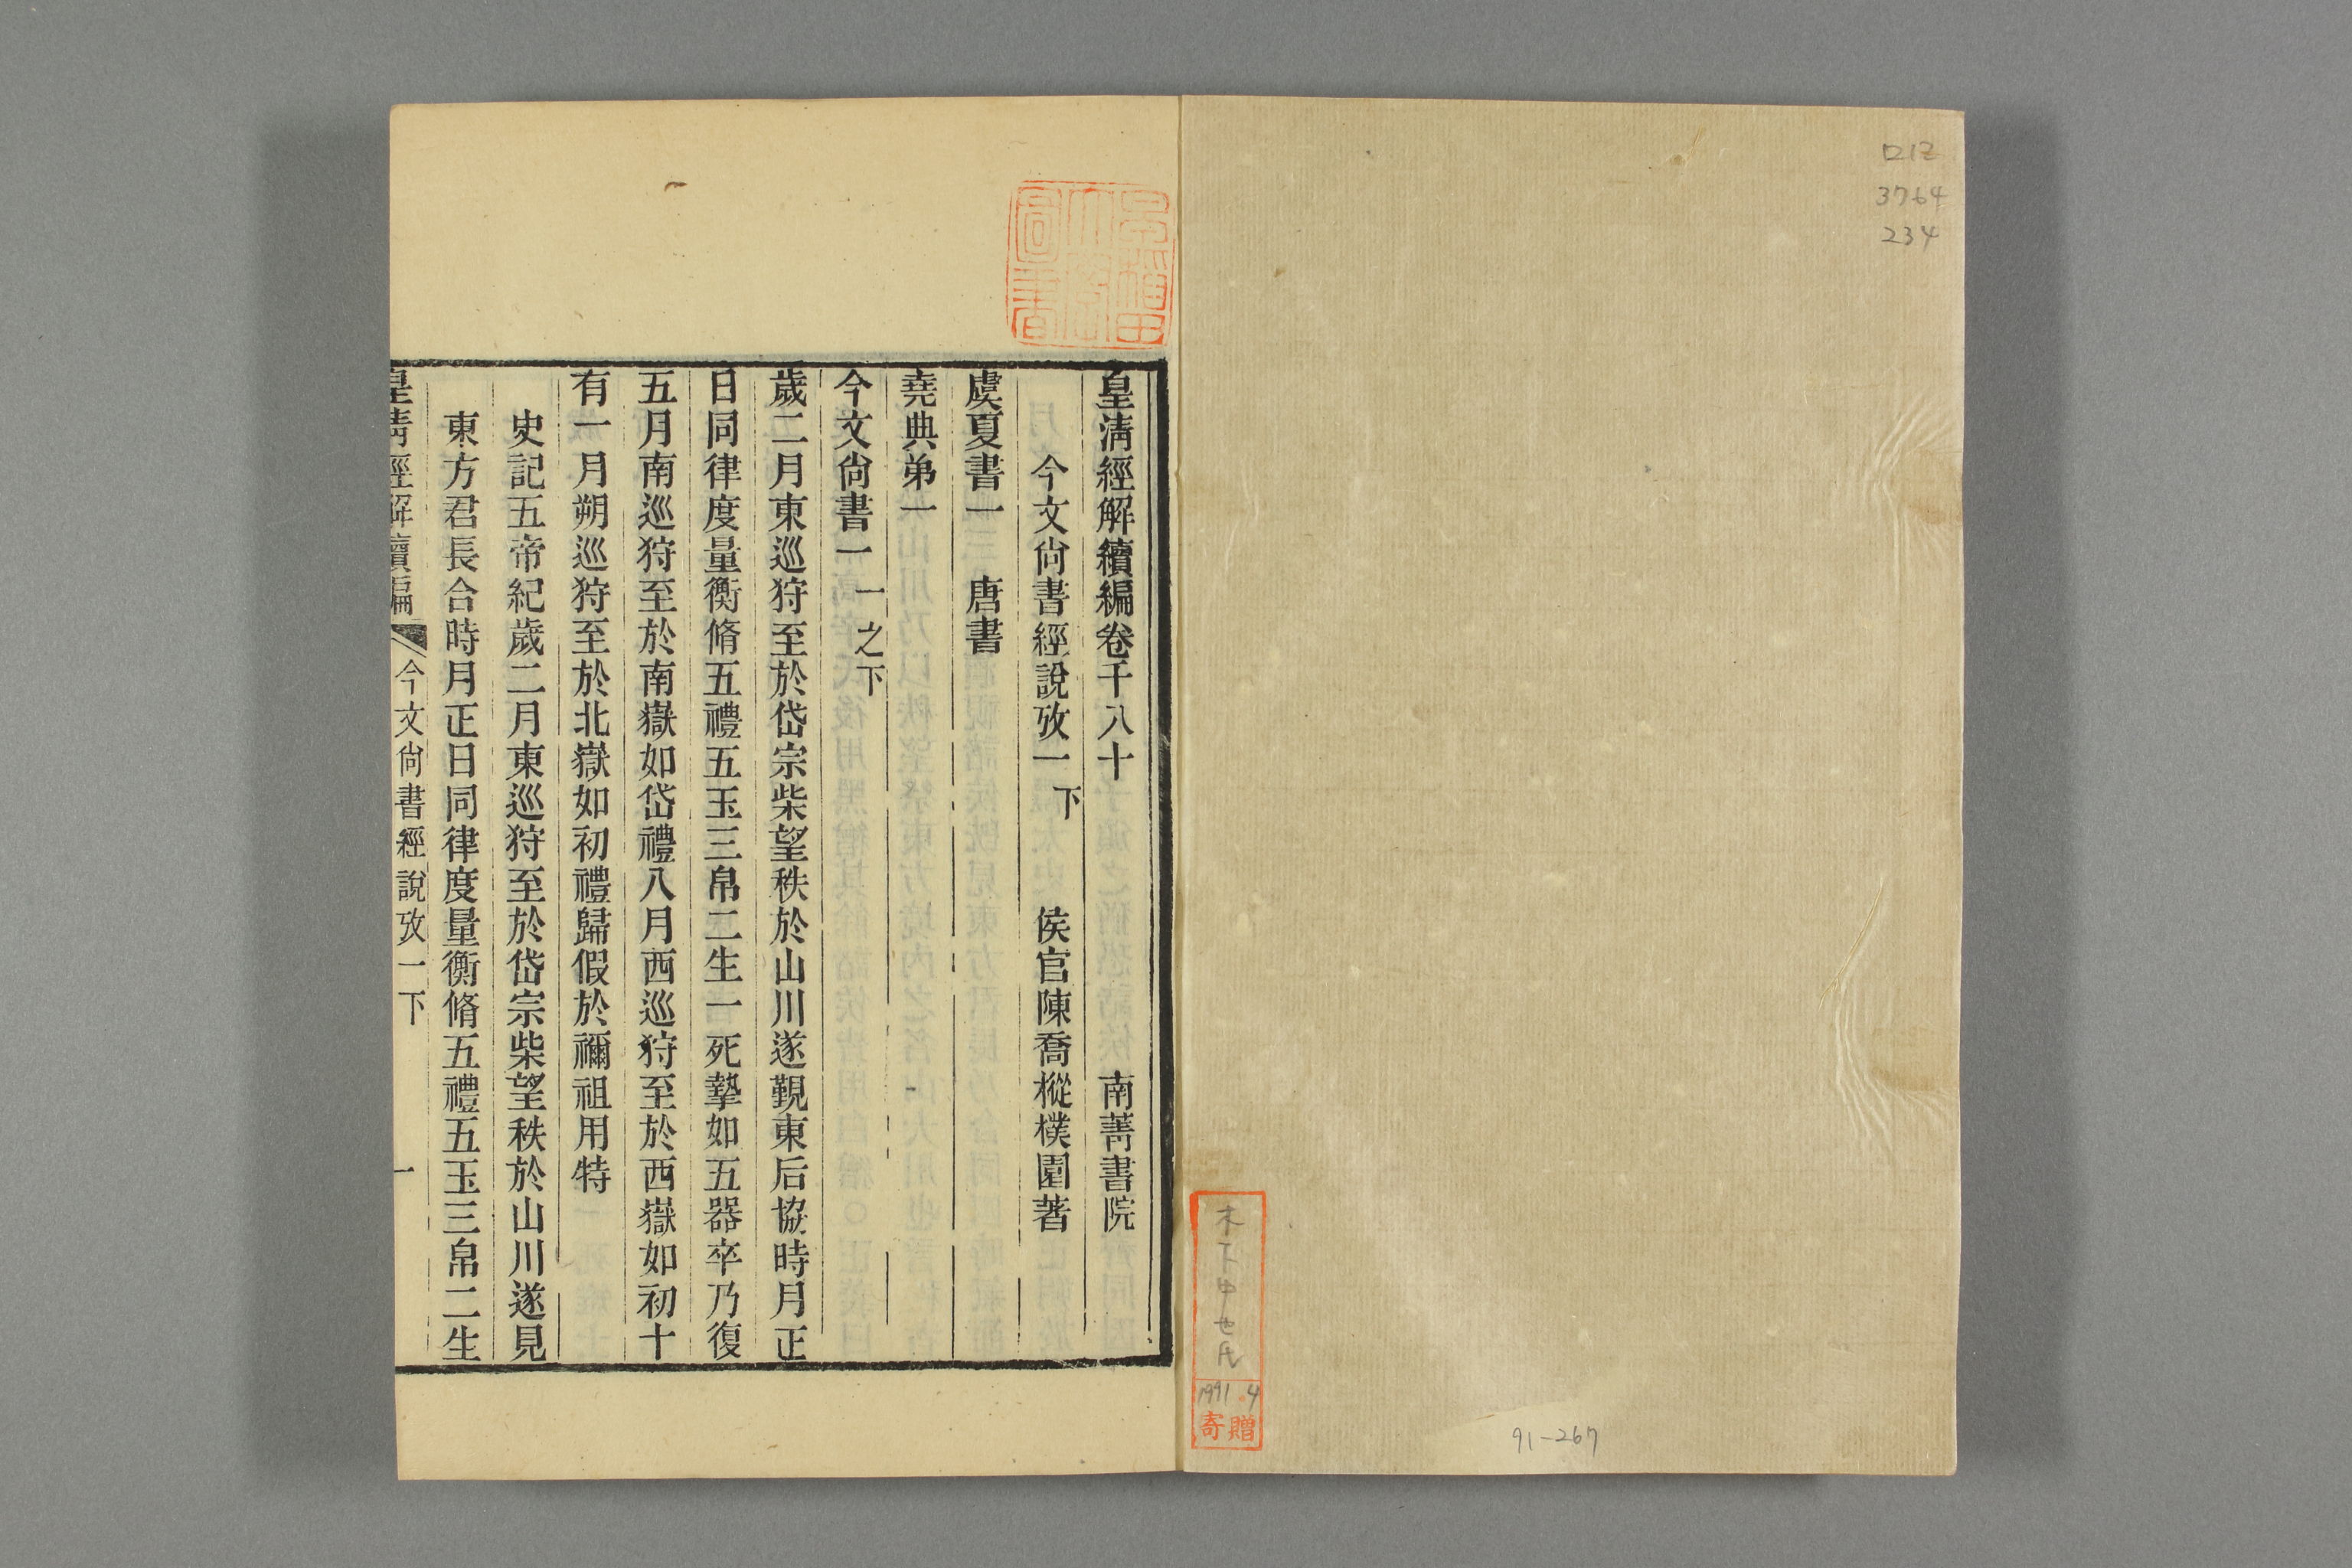 ロ12
3764
234
木下中也氏
1991.4
寄贈
91-267
早稲田大學圖書
皇清經解續編卷千八十 南菁書院
今文尙書經說攷一下 侯官陳喬樅樸園著
虞夏書一 唐書
堯典弟一
今文尙書一 一之下
歲二月東巡狩至於岱宗柴望秩於山川遂覲東后協時月正
日同律度量衡脩五禮五玉三帛二生一死摯如五器卒乃復
五月南巡狩至於南嶽如岱禮八月西巡狩至於西嶽如初十
有一月朔巡狩至於北嶽如初禮歸假於禰祖用特
史記五帝紀歲二月東巡狩至於岱宗柴望秩於山川遂見
東方君長合時月正日同律度量衡脩五禮五玉三帛二生
皇清經解續編 今文尙書經說攷一下 一